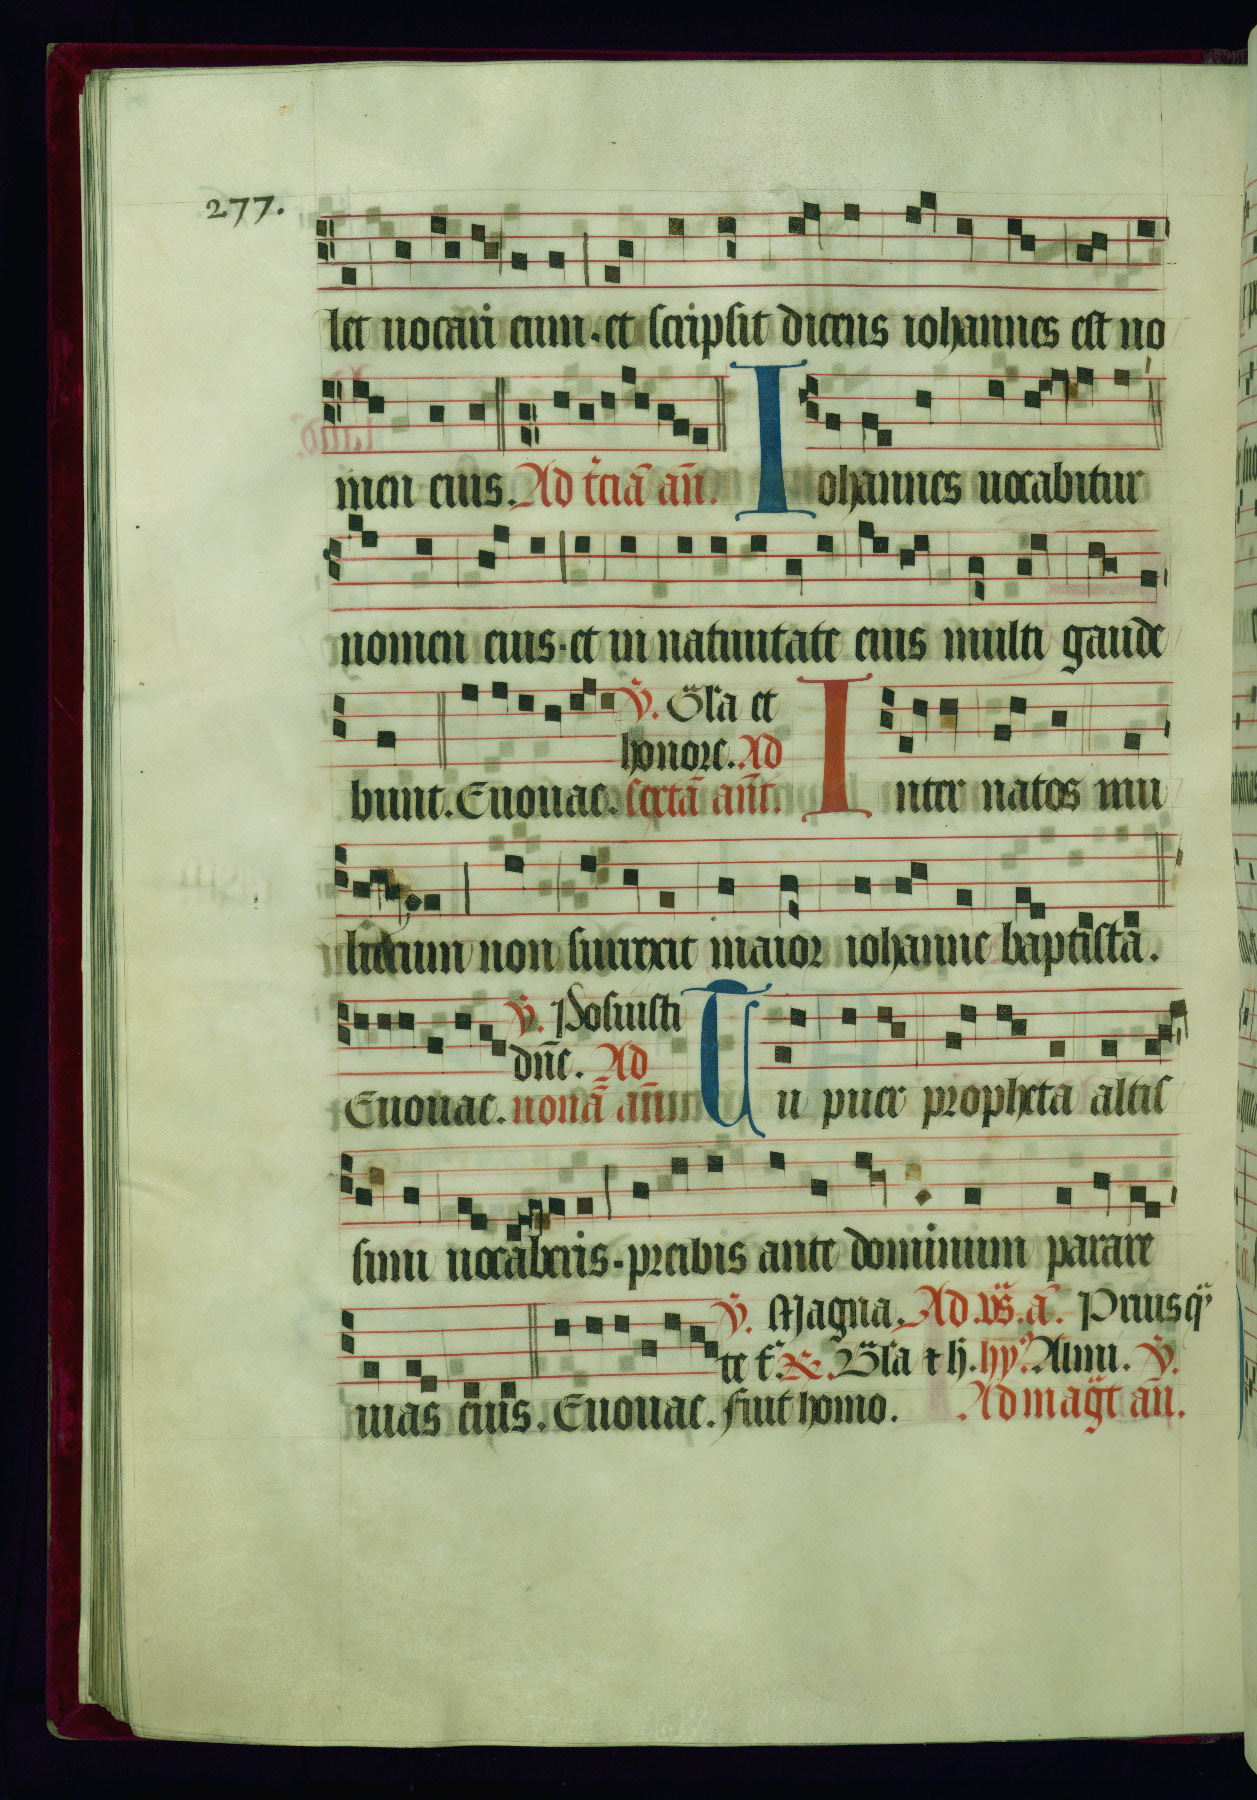 277.
let uocari eum. et scripsit dicens iohannes est no
men eius. Ad t̾ciā an̄. Iohannes uocabitur
nomen eius. et in natiuitate eius multi gaude
bunt. Euouae. V̾. Gl̾a et
honore. Ad
sextā an̄t. Inter natos mu
lierum non surrexit maior iohanne baptista.
Euouae. V̾. Posuisti
dn̄e. Ad
nonā an̄ Tu puer propheta altis
simi uocaberis. preibis ante dominum parare
uias eius. Euouae. V̾. Magna. Ad. ā. Priusq̄
te hy̾. Almi. V̾.
fuit homo. Ad mag̾t an̄.